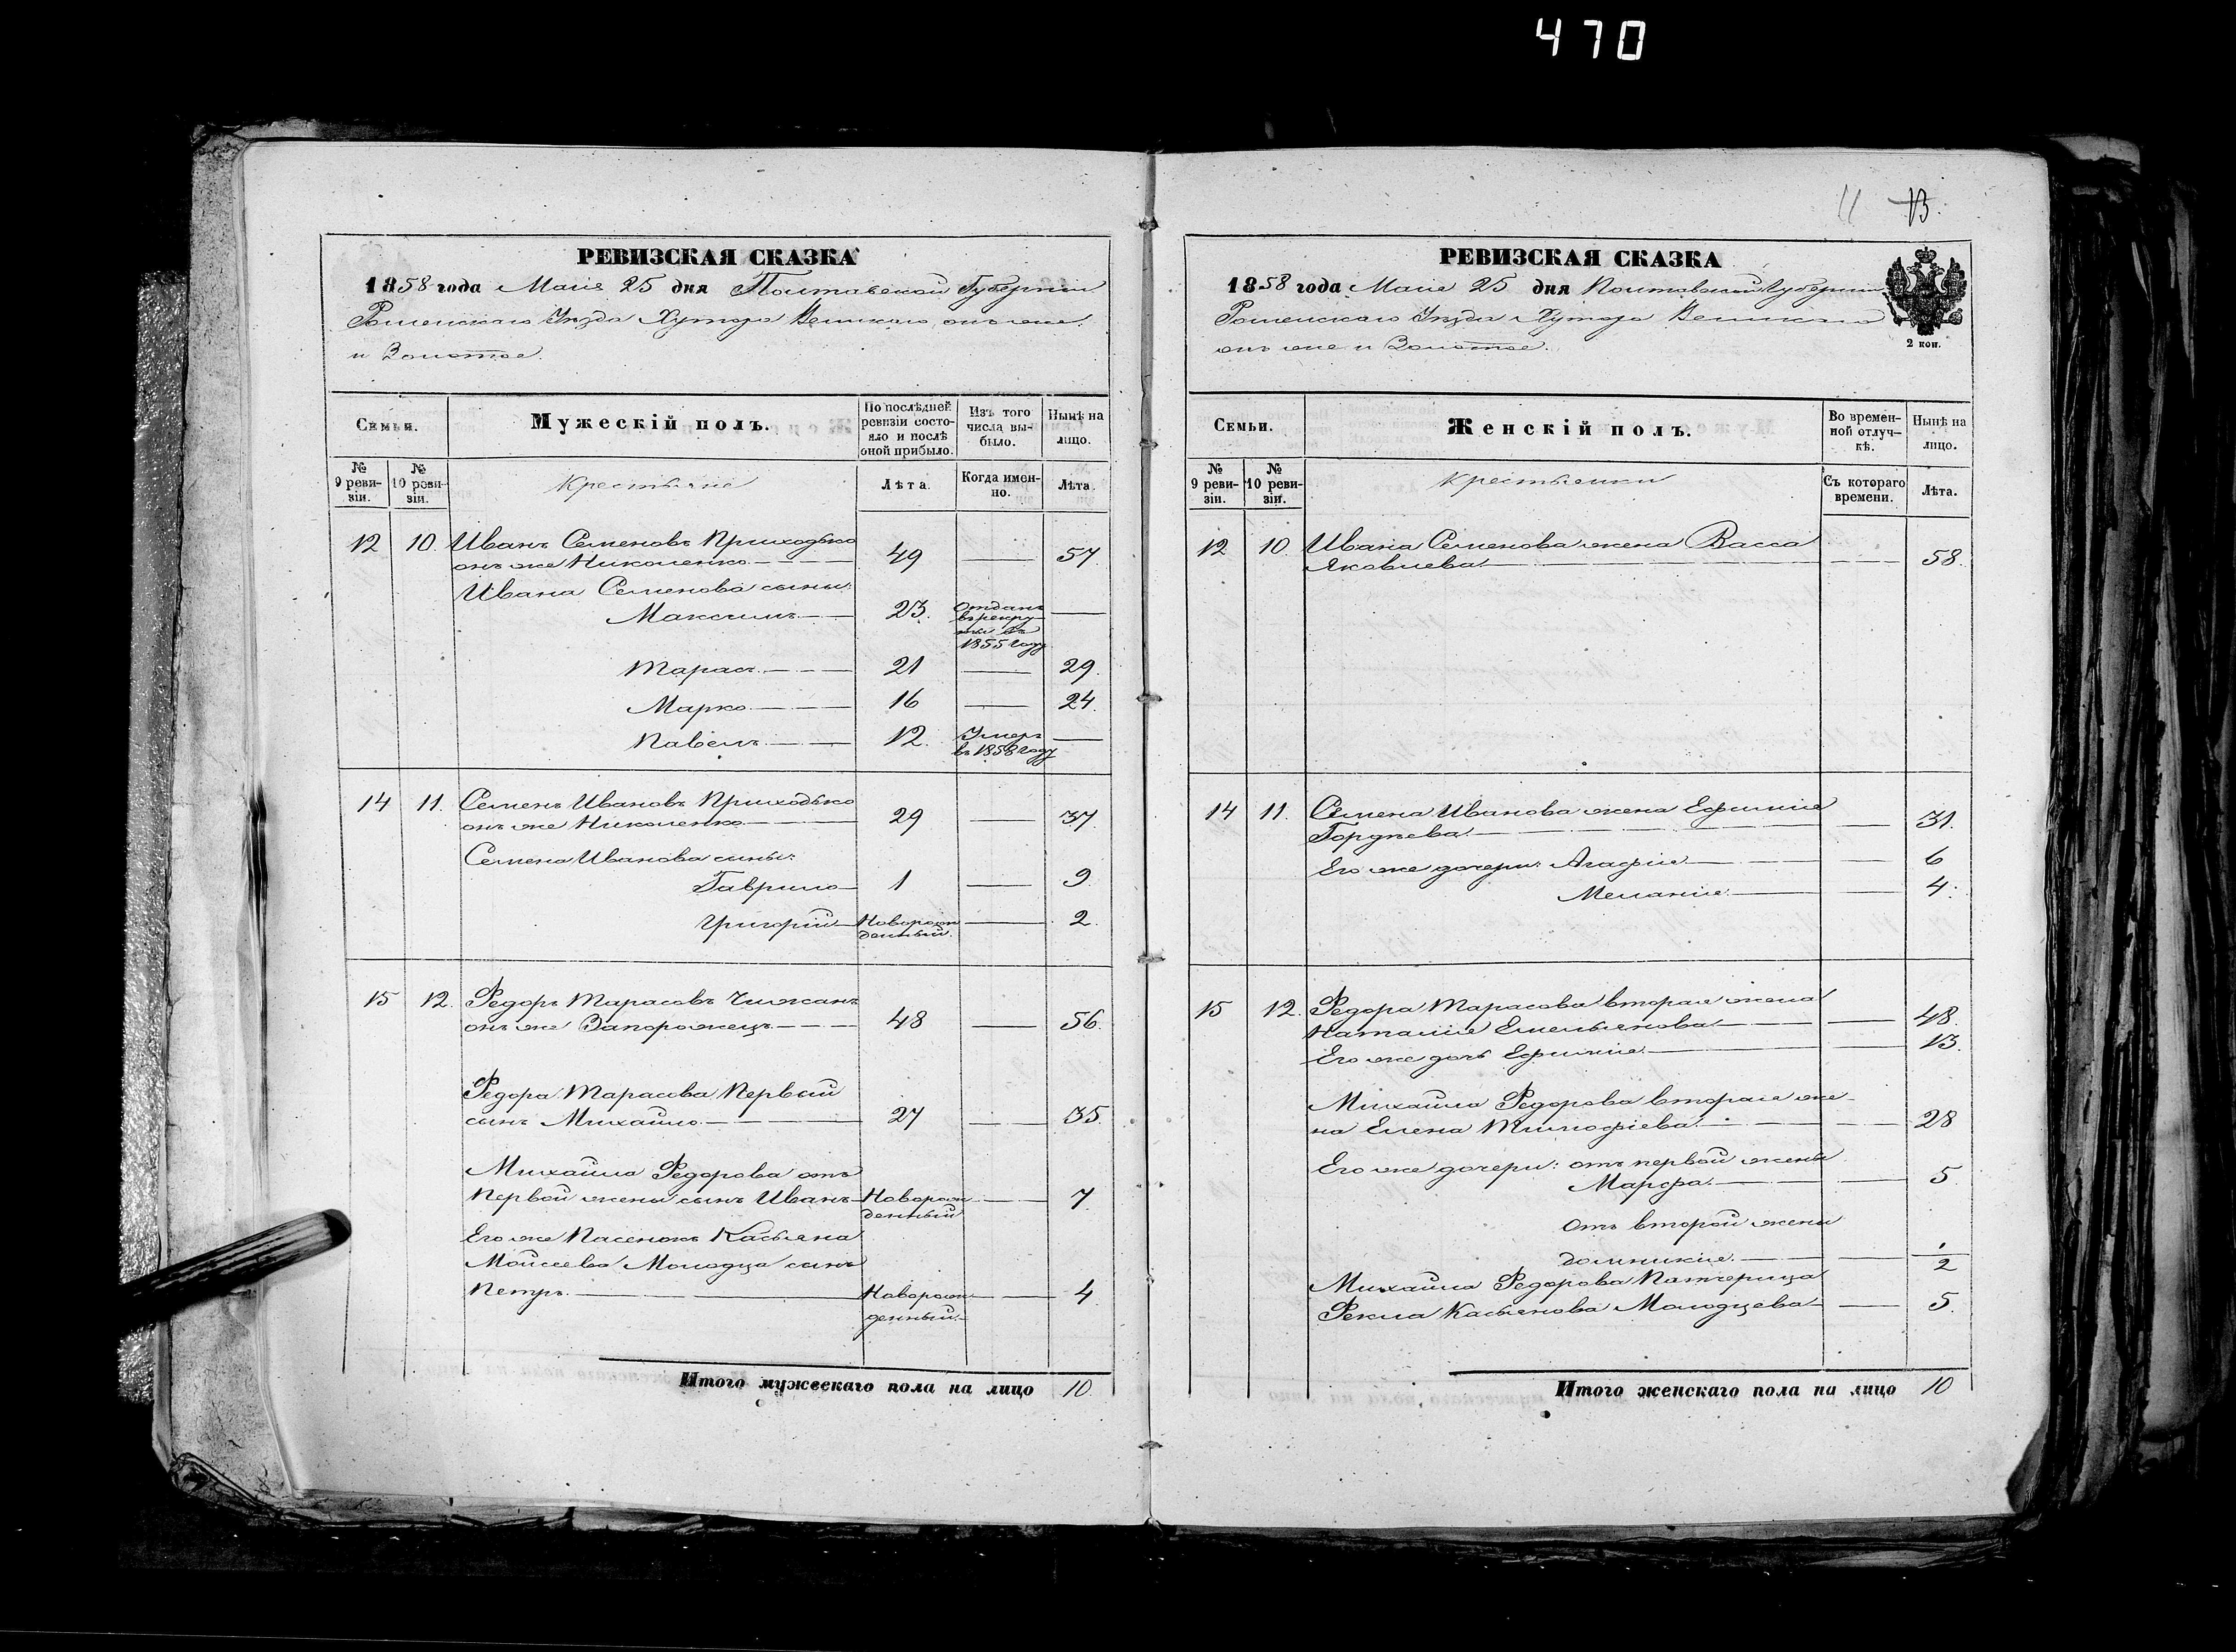 470
РЕВИЗСКАЯ СКАЗКА
1858 года Маія 25 дня Полтавской Губерніи
Роменскаго Уѣзда Хутора Великаго онъ же
и Золотое.
Семьи.
Мужескій полъ.
По послѣдней ревизіи состояло и послѣ оной прибыло.
Изъ того числа выбыло.
Нынѣ на лицо.
№ 9 ревизіи.
№ 10 ревизіи.
Крестьяне
Лѣта.
Когда именно.
Лѣта.
12 10. Иванъ Семеновъ Приходько
онъ же Николенко 49 — 57.
Ивана Семенова сыны:
Максимъ 23. Отданъ
въ рекру-
ты въ
1855 году —
Тарасъ 21 — 29.
Марко 16 — 24.
Павелъ 12. Умеръ
въ 1858 году —
14 11. Семенъ Ивановъ Приходько
онъ же Николенко 29 — 37.
Семена Иванова сыны:
Гаврило 1 — 9
Григорій Новорож
денный. — 2.
15 12. Федоръ Тарасовъ Чижанъ
онъ же Запорожецъ 48 — 56.
Федора Тарасова Первый
сынъ Михайло 27 — 35.
Михайла Федорова отъ
первой жены сынъ Иванъ Новорож
денный — 7.
Его же Пасенокъ Касьяна
Мойсеева Молодца сынъ
Петръ Новорож
денный. — 4
Итого мужескаго пола на лицо 10.
11 13.
РЕВИЗСКАЯ СКАЗКА
1858 года Маія 25 дня Полтавской Губерніи
Роменскаго Уѣзда Хутора Великаго
онъ же и Золотое.
2 коп.
Семьи.
Женскій полъ.
Во временной отлучкѣ.
Нынѣ на лицо.
№ 9 ревизіи.
№ 10 ревизіи.
Крестьянки
Съ котораго времени.
Лѣта.
12 10. Ивана Семенова жена Васса
Яковлева — 58.
14 11. Семена Иванова жена Ефимія
Гордѣева — 31.
Его же дочери: Агафія — 6
Меланія — 4.
15 12. Федора Тарасова вторая жена
Наталія Емельянова — 48.
Его же дочь Ефимія — 13.
Михайла Федорова вторая же-
на Елена Тимофіева — 28
Его же дочери: отъ первой жены
Марфа — 5
отъ второй жены
Домникія — 1/2
Михайла Федорова Патчерица
Фекла Касьянова Молодцева — 5.
Итого женскаго пола на лицо 10